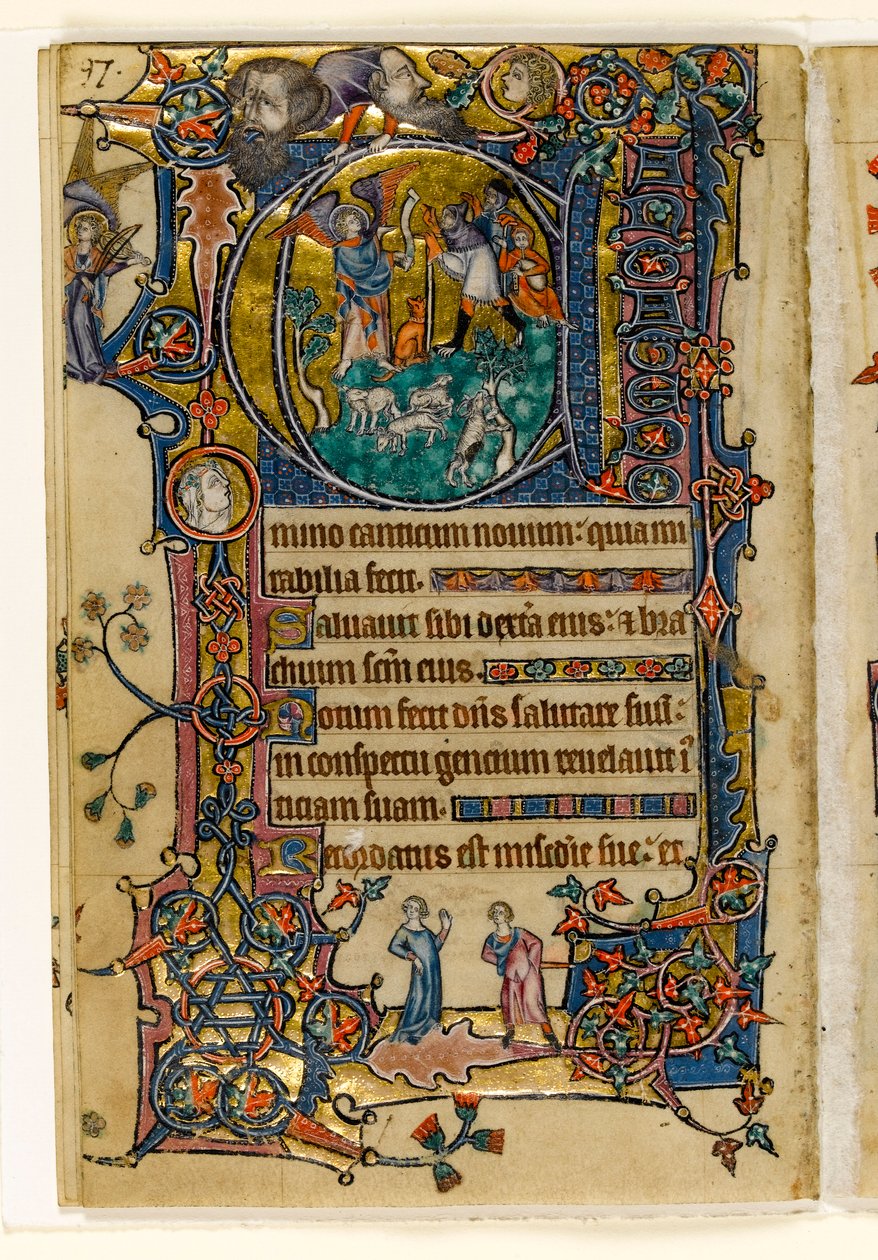 97.
CANTATE DO
mino canticum nouum: quia mi
rabilia fecit.
Saluauit sibi dext̃a eius: & bra
chium sc̄m eius.
Notum fecit dn̄s salutare suū:
in conspectu gencium reuelauit ī
ticiam suam.
Recordatus est mis̄cdīe sue: et